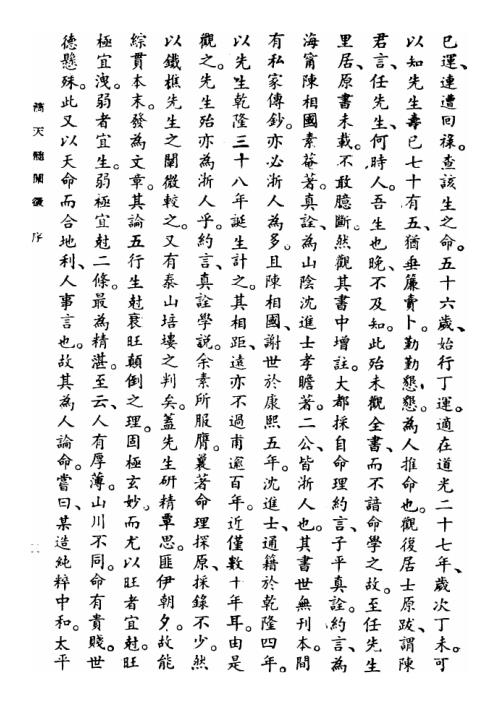 已運、連遭回祿。查該生之命。五十六歲、始行丁運。適在道光二十七年、歲次丁未。可
以知先生壽已七十有五、猶垂簾賣卜。勤勤懇懇、為人推命也。觀復居士原跋、謂陳
君言、任先生、何時人。吾生也晚、不及知。此殆未觀全書、而不諳命學之故。至任先生
里居、原書未載。不敢臆斷。然觀其書中增註。大都採自命理約言、子平真詮。約言、為
海甯陳相國素菴著。真詮、為山陰沈進士孝瞻著。二公、皆浙人也。其書世無刊本。間
有私家傳鈔。亦必浙人為多。且陳相國、謝世於康熙五年。沈進士、通籍於乾隆四年。
以先生乾隆三十八年誕生計之。其相距、遠亦不過甫逾百年。近僅數十年耳。由是
觀之。先生殆亦為浙人乎。約言、真詮學說。余素所服膺。曩著命理探原、採錄不少。然
以鐵樵先生之闡微較之。又有泰山培塿之判矣。蓋先生研精覃思。匪伊朝夕。故能
綜貫本末。發為文章。其論五行生尅衰旺顛倒之理。固極玄妙。而尤以旺者宜尅。旺
極宜洩。弱者宜生。弱極宜尅二條。最為精湛。至云、人有厚薄。山川不同。命有貴賤。世
德懸殊。此又以天命而合地利、人事言也。故其為人論命。嘗曰、某造純粹中和。太平
滴天髓闡微 序
二